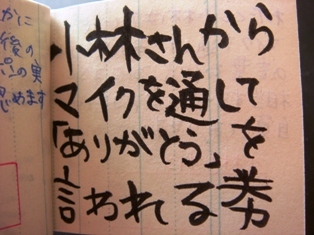 かに
後の
の実
めます
小林さんから
マイクを通して
「ありがとう」を
言われる券